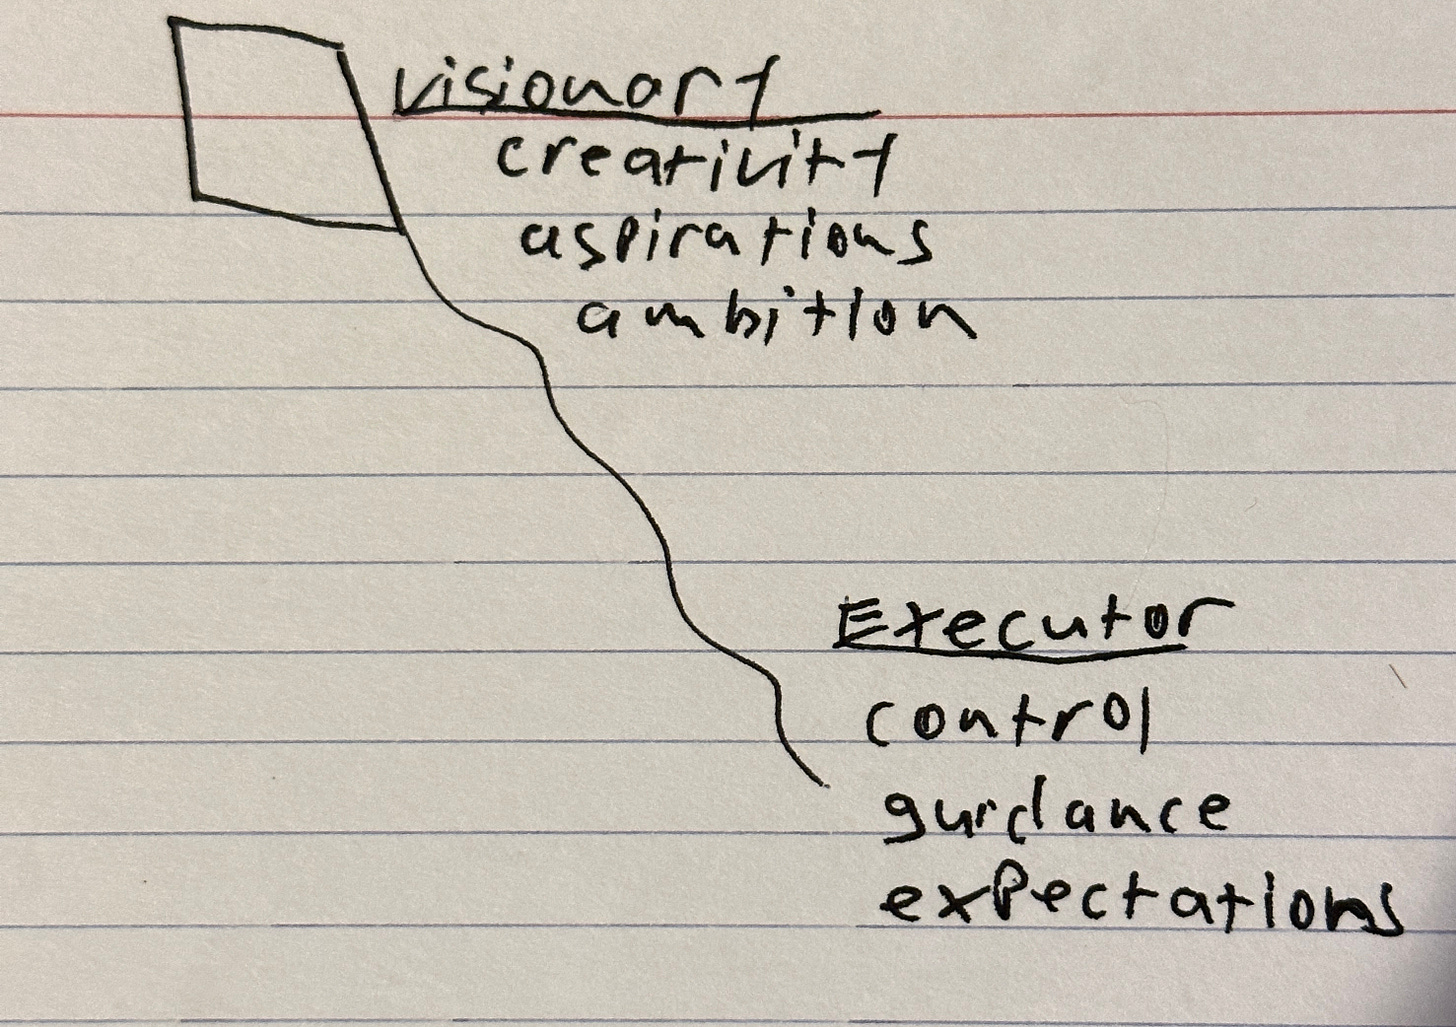 visionary
creativity
aspirations
ambition
Executor
control
guidance
expectations